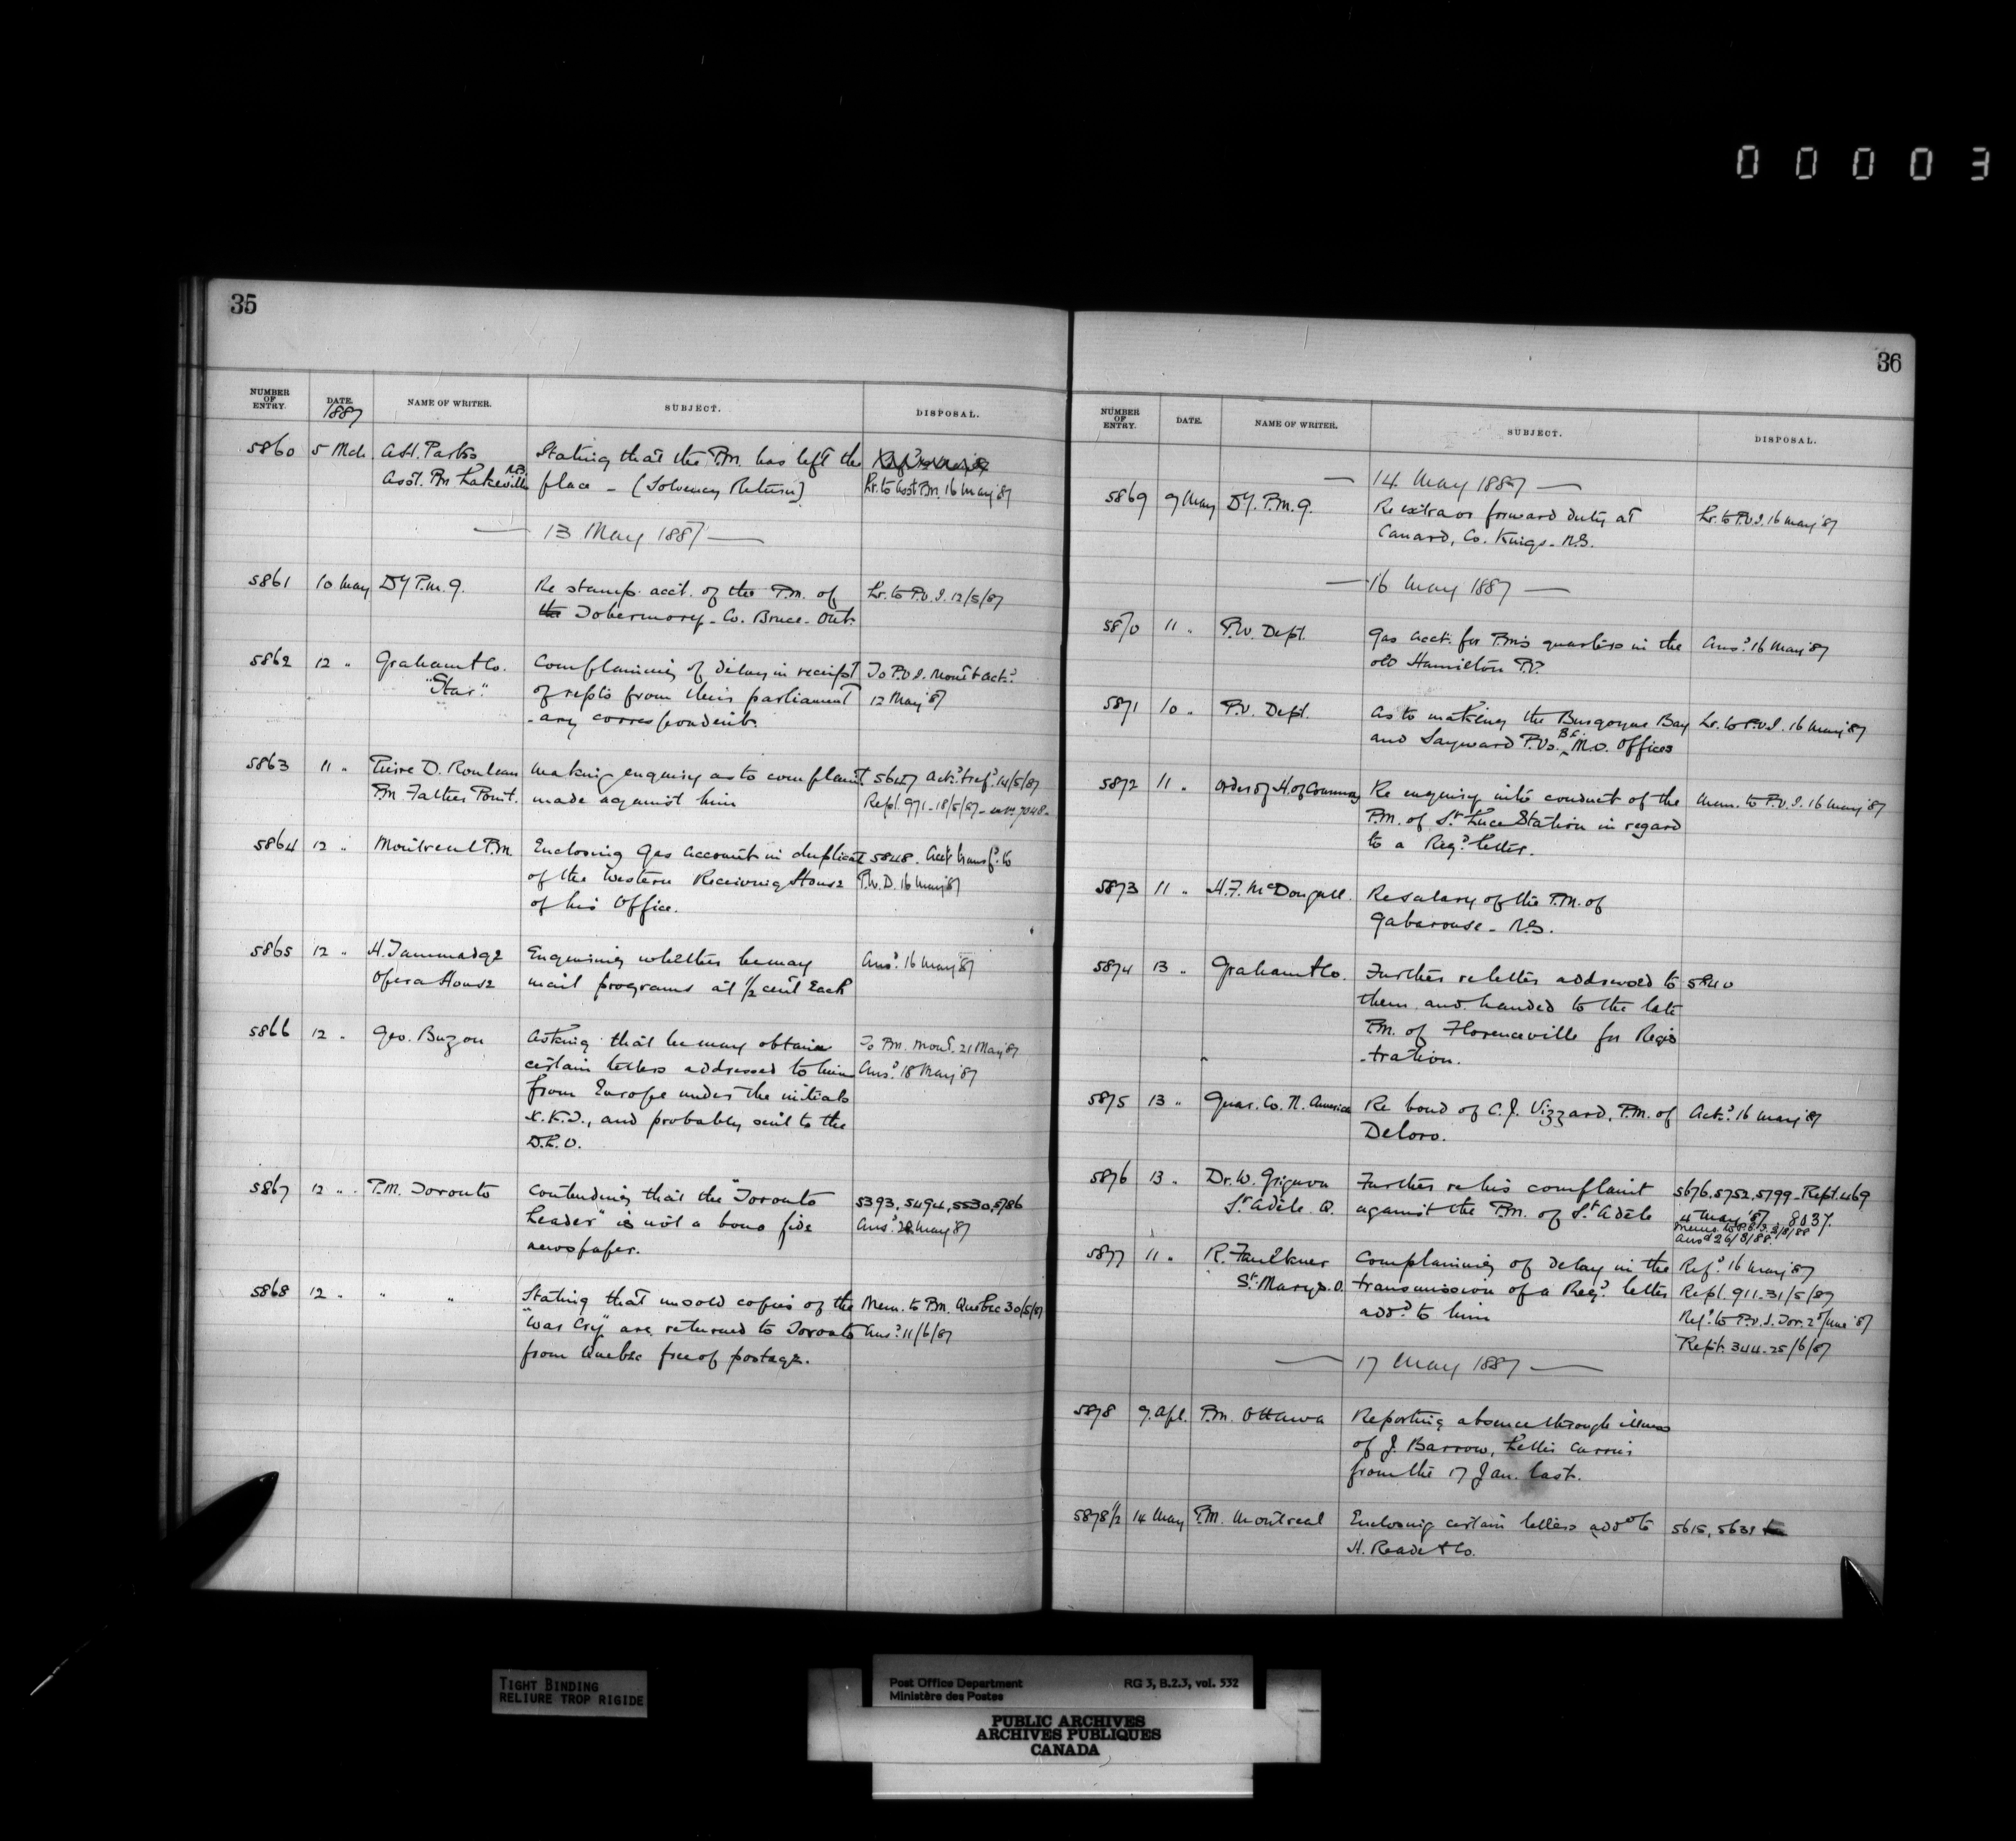 00003
35
NUMBER OF ENTRY.
DATE. 1887
NAME OF WRITER.
SUBJECT.
DISPOSAL.
5860 5 Mch A.H. Parks Stating that the P.M. has left the
Asst. P.M. Lakeville N.B. place - (Solvency Return) Lr. to Asst P.M. 16 May '87
— 13 May 1887 —
5861 10 May Dy P.M.G. Re stamp acct. of the P.M. of Lr. to P.O.I. 12/5/87
the Tobermory - Co. Bruce - Ont.
5862 12 " Graham & Co. Complaining of delay in receipt To P.O.I. Mont & Ackd
"Star" of repts from their parliament 12 May '87
-ary correspondents.
5863 11 " Pierre D. Rouleau Making enquiry as to complaint 5647 Ackd & refd 14/5/87
P.M. Father Point. made against him Rept. 971 - 18/5/87 - 7048.
5864 12 " Montreal P.M. Enclosing Gas Account in duplicate 5848. Acct transfd to
of the Western Receiving House P.W.D. 16 May '87
of his Office.
5865 12 " H. Tammadge Enquiring whether he may Ansd 16 May '87
Opera House mail programs at 1/2 cent Each
5866 12 " Geo. Buzon Asking that he may obtain To P.M. Mont. 21 May '87
certain letters addressed to him Ansd 18 May '87
from Europe under the initials
X.K.I., and probably sent to the
D.L.O.
5867 12 " P.M. Toronto Contending that the "Toronto 5393, 5494, 5530, 5786
Leader" is not a bona fide Ansd 28 May '87
newspaper.
5868 12 " " " Stating that unsold copies of the Mem. to P.M. Quebec 30/5/87
"War Cry" are returned to Toronto Ansd 11/6/87
from Quebec free of postage.
36
NUMBER OF ENTRY.
DATE.
NAME OF WRITER.
SUBJECT.
DISPOSAL.
— 14 May 1887 —
5869 9 May Dy. P.M.G. Re extra or forward duty at Lr. to P.O.I. 16 May '87
Canard, Co. Kings - N.S.
— 16 May 1887 —
5870 11 " P.W. Dept. Gas acct. for P.M's quarters in the Ansd 16 May '87
old Hamilton P.O.
5871 10 " P.O. Dept. As to making the Burgoyne Bay Lr. to P.O.I. 16 May '87
and Sayward P.Os. B.C. M.O. Offices
5872 11 " Order of H. of Commons Re enquiry into conduct of the Mem. to P.O.I. 16 May '87
P.M. of St. Luce Station in regard
to a Regd letter.
5873 11 " H.F. McDougall. Re salary of the P.M. of
Gabarouse - N.S.
5874 13 " Graham & Co. Further re letter addressed to 5840
them and handed to the late
P.M. of Florenceville for Regis
-tration.
5875 13 " Guar. Co. N. America Re bond of C.J. Vizzard, P.M. of Ackd 16 May '87
Deloro.
5876 13 " Dr. W. Grignon Further re his complaint 5676, 5752, 5799 - Rept. 469
St. Adèle. Q. against the P.M. of St. Adèle 4 May '87 - 8037.
Ansd 26/3/88.
5877 11 " R. Faulkner Complaining of delay in the Refd 16 May '87
St. Marys. O. transmission of a Regd letter Rept. 911. 31/5/87
addd to him Refd to P.O.I. Tor. 2 June '87
Rept. 344 - 25/6/87
— 17 May 1887 —
5878 9 Apl. P.M. Ottawa Reporting absence through illness
of J. Barrow, Letter Carrier
from the 17 Jan. last.
5878 1/2 14 May P.M. Montreal Enclosing certain letters addd to 5615, 5631
H. Reade & Co.
TIGHT BINDING
RELIURE TROP RIGIDE
Post Office Department RG 3, B.2.3, vol. 532
Ministère des Postes
PUBLIC ARCHIVES
ARCHIVES PUBLIQUES
CANADA